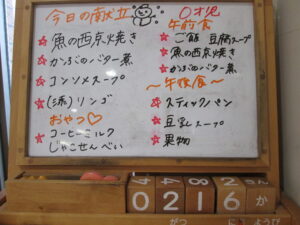 今日の献立
☆ 魚の西京焼き
☆ かぶのバター煮
☆ コンソメスープ
☆ (添)リンゴ
おやつ♡
☆ コーヒーミルク
じゃこせんべい
0才児
午前食
☆ ご飯 豆腐スープ
☆ 魚の西京焼き
☆ かぶのバター煮
〜午後食〜
☆ スティックパン
☆ 豆乳スープ
☆ 果物
0 2 1 6 か
がつ にち ようび